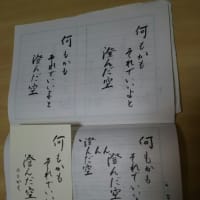 何もかも
それでいいよと
澄んだ空
何もかも
それでいいよと
澄んだ空
何もかも
それでいいよと
澄んだ空
んん
澄んだ空
何もかも
それでいいよと
澄んだ空